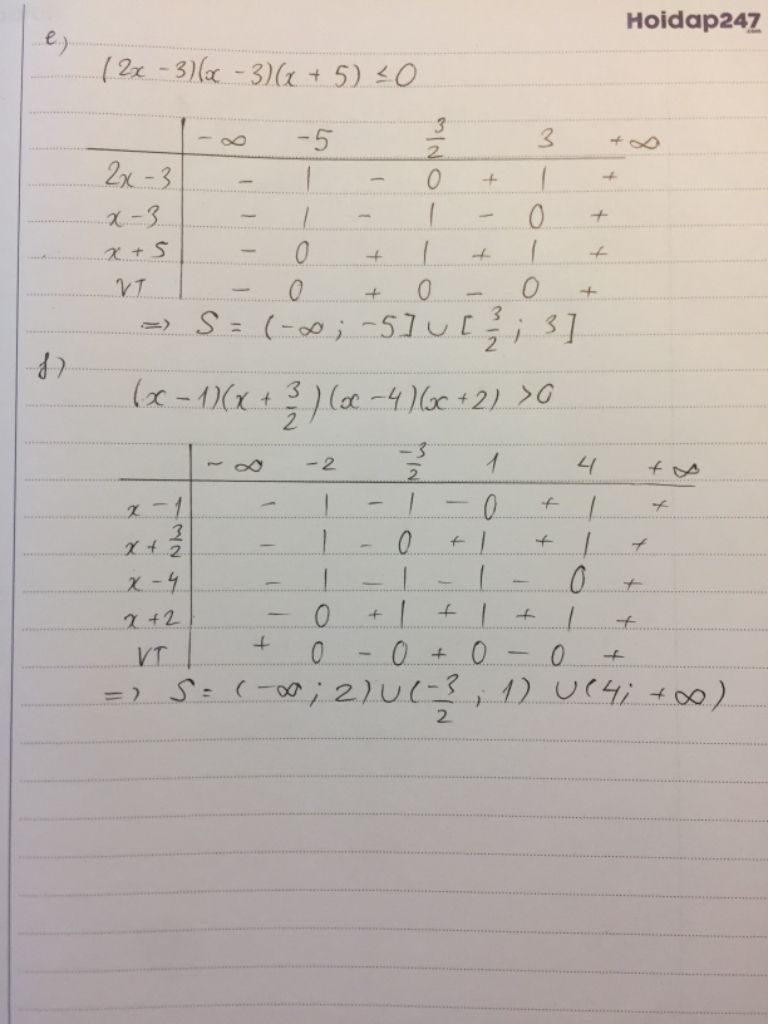 Hoidap247.com
e.)
(2x - 3)(x - 3)(x + 5) ≤ 0
-∞ -5 3/2 3 +∞
2x - 3 - | - 0 + | +
x - 3 - | - | - 0 +
x + 5 - 0 + | + | +
VT - 0 + 0 - 0 +
=> S = (-∞ ; -5] ∪ [3/2 ; 3]
f)
(x - 1)(x + 3/2)(x - 4)(x + 2) > 0
-∞ -2 -3/2 1 4 +∞
x - 1 - | - | - 0 + | +
x + 3/2 - | - 0 + | + | +
x - 4 - | - | - | - 0 +
x + 2 - 0 + | + | + | +
VT + 0 - 0 + 0 - 0 +
=> S = (-∞ ; 2) ∪ (-3/2 ; 1) ∪ (4; +∞)